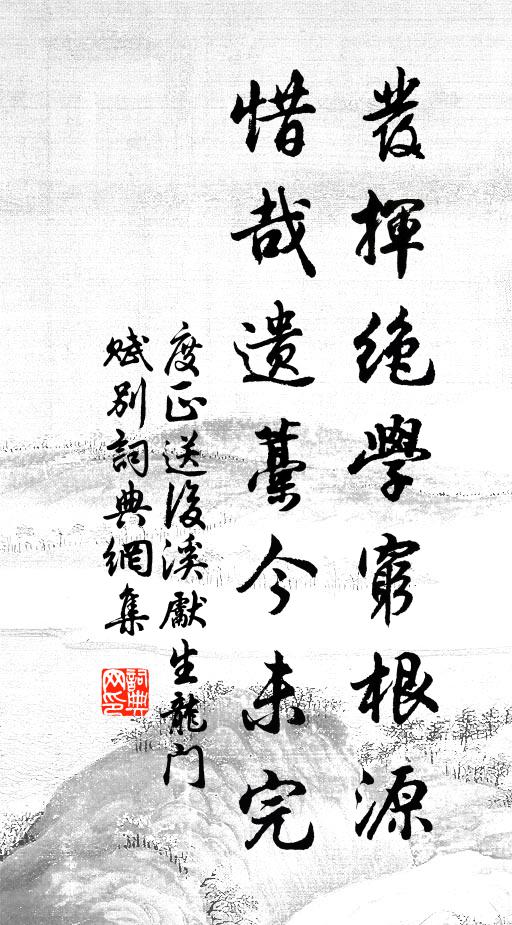 發揮絕學窮根源
惜哉遺藁今未完
度正送後溪獻生龍门
賦別詞典網集
詞典
网印